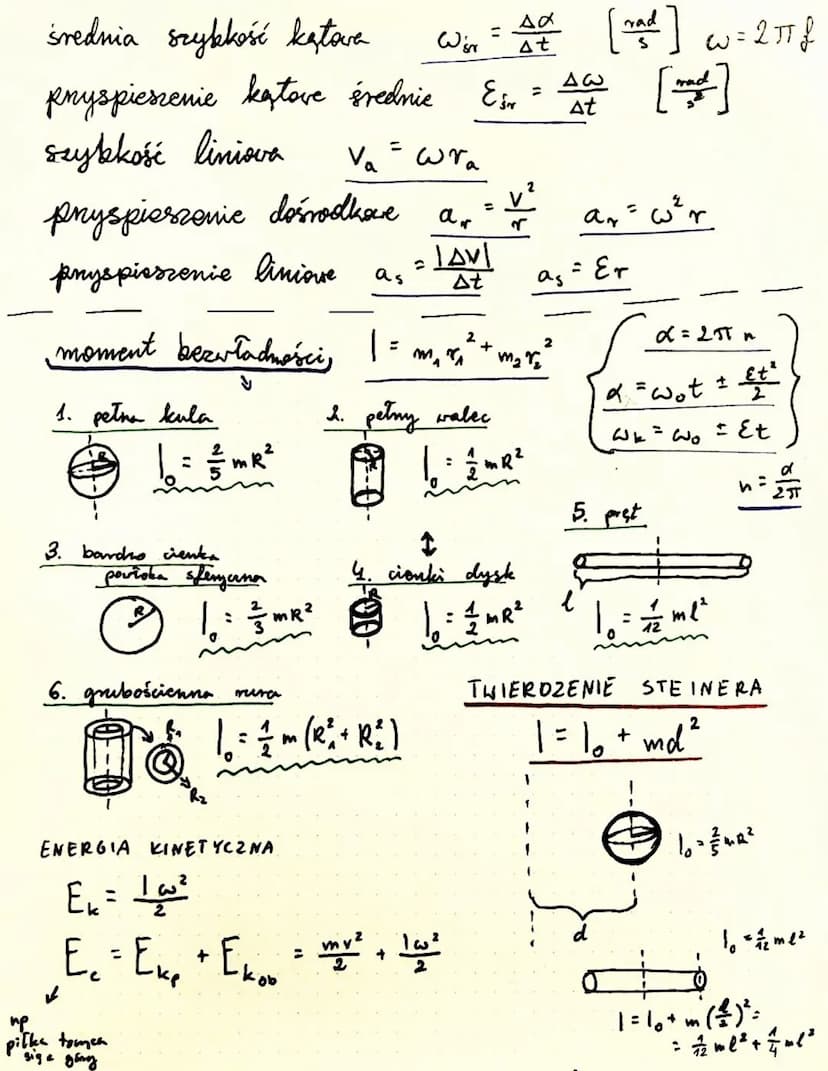 średnia szybkość kątowa ω_śr = Δα/Δt [rad/s] ω = 2πf
przyspieszenie kątowe średnie ε_śr = Δω/Δt [rad/s²]
szybkość liniowa v_a = ωr_a
przyspieszenie dośrodkowe a_r = v²/r a_r = ω²r
przyspieszenie liniowe a_s = |Δv|/Δt a_s = εr
moment bezwładności, I = m₁r₁² + m₂r₂²
α = 2πn
α = ω₀t ± εt²/2
ω_k = ω₀ ± εt
n = α/2π
1. pełna kula
R
I₀ = 2/5 mR²
2. pełny walec
R
I₀ = 1/2 mR²
3. bardzo cienka
powłoka sferyczna
R
I₀ = 2/3 mR²
↕
4. cienki dysk
R
I₀ = 1/2 mR²
5. pręt
l
I₀ = 1/12 ml²
6. grubościenna rura
R₁
R₂
I₀ = 1/2 m(R₁² + R₂²)
TWIERDZENIE STEINERA
I = I₀ + md²
I₀ = 2/5 mR²
d
I₀ = 1/12 ml²
I = I₀ + m(l/2)² =
= 1/12 ml² + 1/4 ml²
ENERGIA KINETYCZNA
E_k = Iω²/2
E_c = E_kp + E_kob = mv²/2 + Iω²/2
np
piłka
się z góry